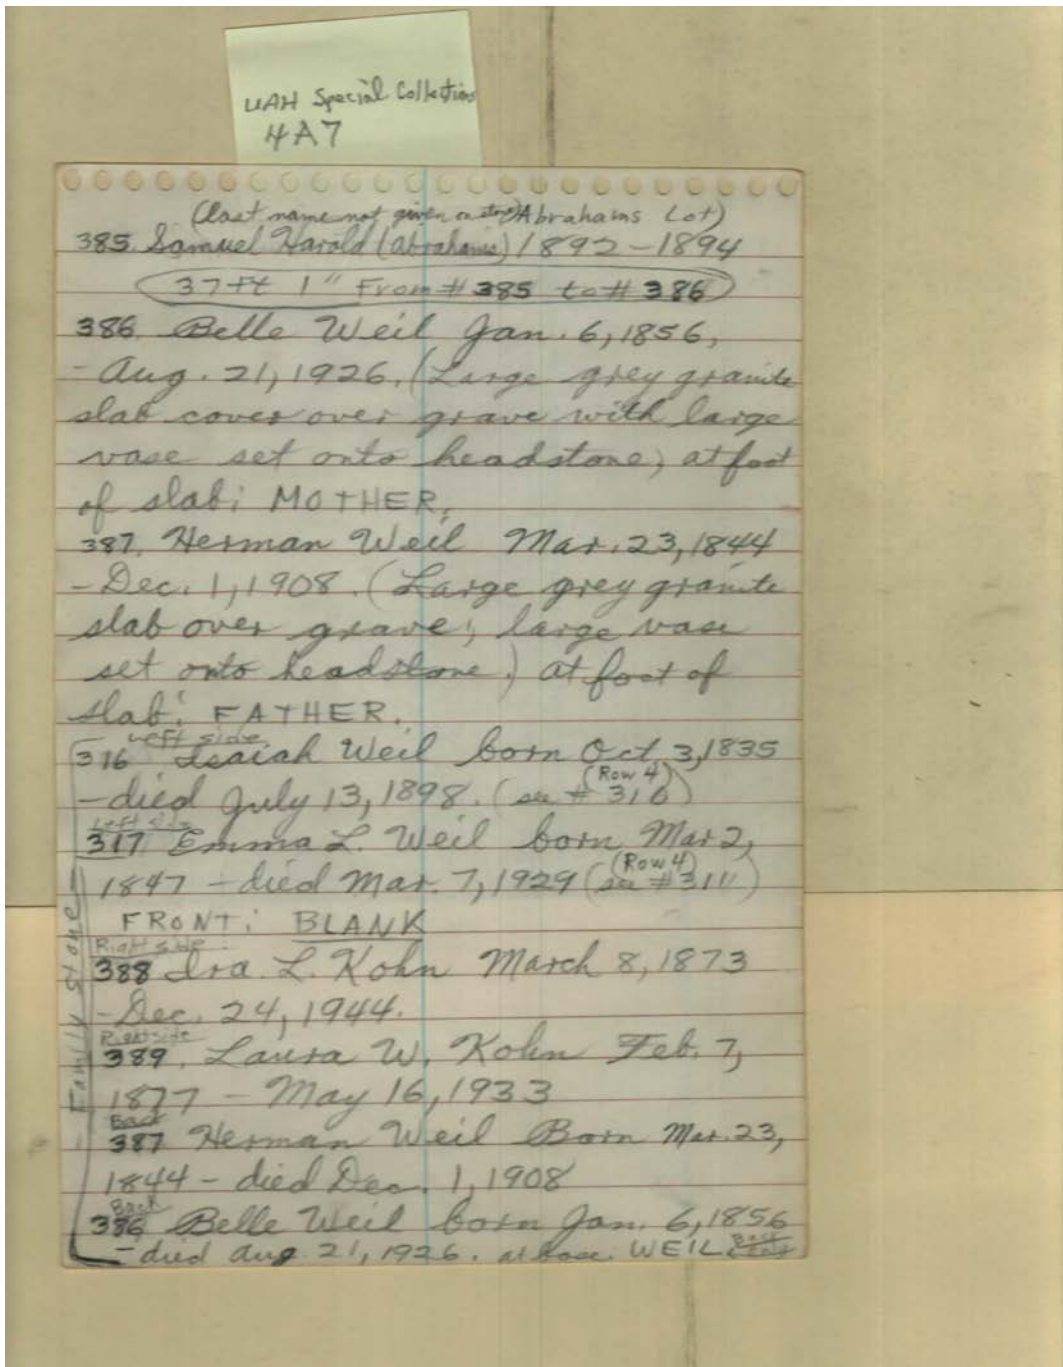 UAH Special Collections
4A7
(last name not given on stone) Abrahams Lot)
385. Samuel Harold (Abrahams) 1892-1894
37ft 1" From # 385 to # 386
386. Belle Weil Jan. 6, 1856,
- Aug. 21, 1926. (Large grey granite
slab cover over grave with large
vase set onto headstone) at foot
of slab: MOTHER.
387. Herman Weil Mar. 23, 1844
- Dec. 1, 1908. (Large grey granite
slab over grave; large vase
set onto headstone) at foot of
slab: FATHER.
Left side
316 Isaiah Weil born Oct. 3, 1835
(Row 4)
- died July 13, 1898. (see # 310)
Left side
317 Emma L. Weil born Mar 2,
(Row 4)
1847 - died Mar. 7, 1929 (see # 311)
Family Stone
FRONT: BLANK
Right side
388 Ira L. Kohn March 8, 1873
- Dec. 24, 1944.
Right side
389. Laura W. Kohn Feb. 7,
1877 - May 16, 1933
Back
387 Herman Weil Born Mar. 23,
1844 - died Dec. 1, 1908
Back
386 Belle Weil born Jan. 6, 1856
- died Aug. 21, 1926. at base: WEIL.